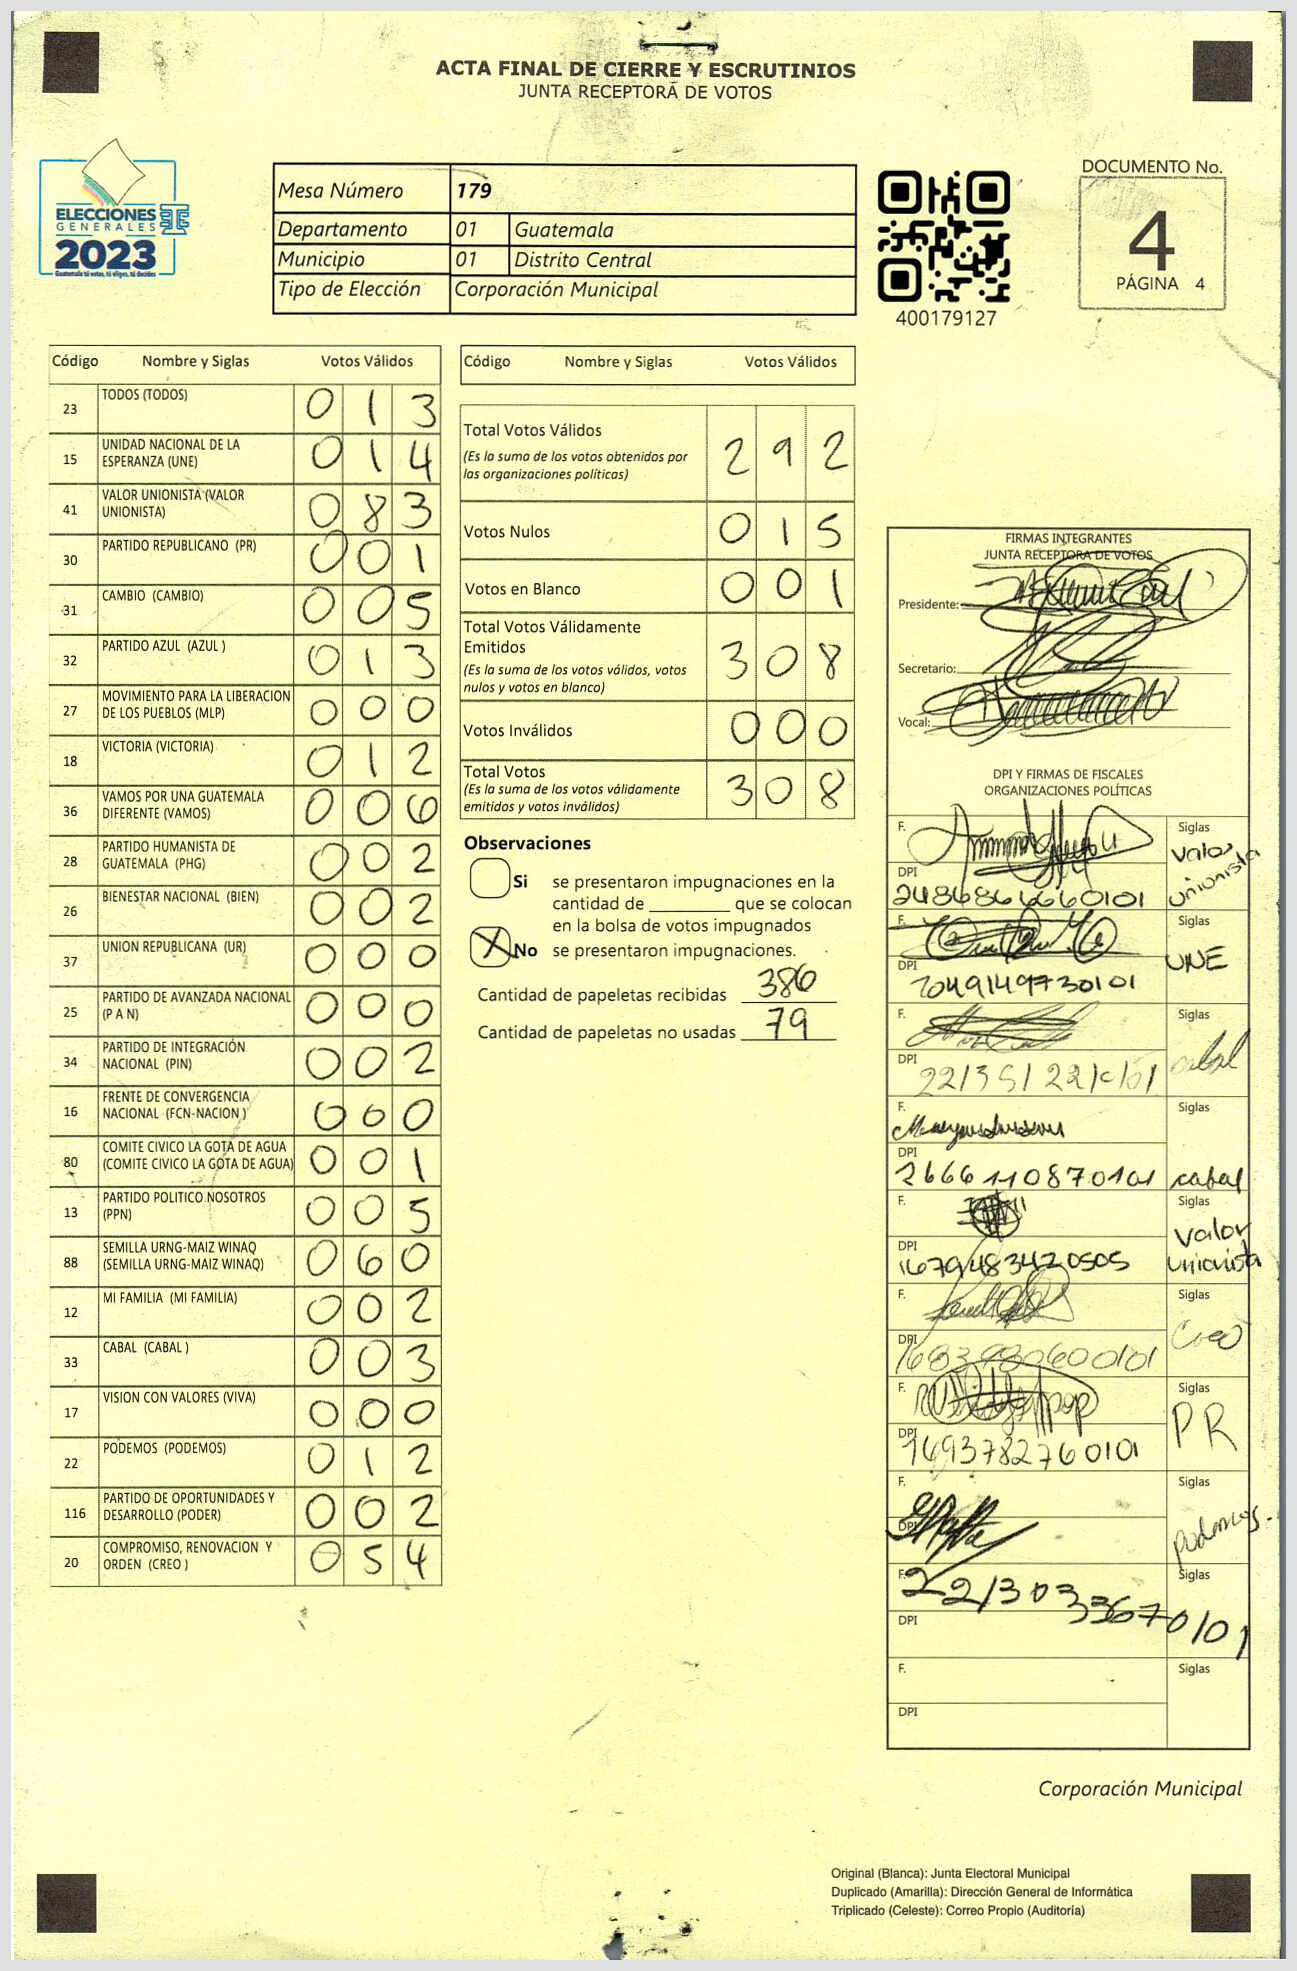 ACTA FINAL DE CIERRE Y ESCRUTINIOS
JUNTA RECEPTORA DE VOTOS
ELECCIONES
GENERALES
2023
Guatemala tú votas, tú eliges, tú decides
Mesa Número 179
Departamento 01 Guatemala
Municipio 01 Distrito Central
Tipo de Elección Corporación Municipal
400179127
DOCUMENTO No.
4
PÁGINA 4
Código Nombre y Siglas Votos Válidos
23 TODOS (TODOS) 0 1 3
15 UNIDAD NACIONAL DE LA
ESPERANZA (UNE) 0 1 4
41 VALOR UNIONISTA (VALOR
UNIONISTA) 0 8 3
30 PARTIDO REPUBLICANO (PR) 0 0 1
31 CAMBIO (CAMBIO) 0 0 5
32 PARTIDO AZUL (AZUL ) 0 1 3
27 MOVIMIENTO PARA LA LIBERACION
DE LOS PUEBLOS (MLP) 0 0 0
18 VICTORIA (VICTORIA) 0 1 2
36 VAMOS POR UNA GUATEMALA
DIFERENTE (VAMOS) 0 0 6
28 PARTIDO HUMANISTA DE
GUATEMALA (PHG) 0 0 2
26 BIENESTAR NACIONAL (BIEN) 0 0 2
37 UNION REPUBLICANA (UR) 0 0 0
25 PARTIDO DE AVANZADA NACIONAL
(P A N) 0 0 0
34 PARTIDO DE INTEGRACIÓN
NACIONAL (PIN) 0 0 2
16 FRENTE DE CONVERGENCIA
NACIONAL (FCN-NACION ) 0 0 0
80 COMITE CIVICO LA GOTA DE AGUA
(COMITE CIVICO LA GOTA DE AGUA) 0 0 1
13 PARTIDO POLITICO NOSOTROS
(PPN) 0 0 5
88 SEMILLA URNG-MAIZ WINAQ
(SEMILLA URNG-MAIZ WINAQ) 0 6 0
12 MI FAMILIA (MI FAMILIA) 0 0 2
33 CABAL (CABAL ) 0 0 3
17 VISION CON VALORES (VIVA) 0 0 0
22 PODEMOS (PODEMOS) 0 1 2
116 PARTIDO DE OPORTUNIDADES Y
DESARROLLO (PODER) 0 0 2
20 COMPROMISO, RENOVACION Y
ORDEN (CREO ) 0 5 4
Código Nombre y Siglas Votos Válidos
Total Votos Válidos 2 9 2
(Es la suma de los votos obtenidos por
las organizaciones políticas)
Votos Nulos 0 1 5
Votos en Blanco 0 0 1
Total Votos Válidamente
Emitidos 3 0 8
(Es la suma de los votos válidos, votos
nulos y votos en blanco)
Votos Inválidos 0 0 0
Total Votos 3 0 8
(Es la suma de los votos válidamente
emitidos y votos inválidos)
Observaciones
Si se presentaron impugnaciones en la
cantidad de que se colocan
en la bolsa de votos impugnados
X No se presentaron impugnaciones.
Cantidad de papeletas recibidas 386
Cantidad de papeletas no usadas 79
FIRMAS INTEGRANTES
JUNTA RECEPTORA DE VOTOS
Presidente:
Secretario:
Vocal:
DPI Y FIRMAS DE FISCALES
ORGANIZACIONES POLÍTICAS
F. Siglas
Valor
unionista
DPI
F. Siglas
UNE
DPI
2049149730101
F. Siglas
cabal
DPI
F. Siglas
cabal
DPI
2666110870101
F. Siglas
Valor
unionista
DPI
1679483420505
F. Siglas
Creo
DPI
F. Siglas
PR
DPI
1493782760101
F. Siglas
podemos.
DPI
F. Siglas
2213033670101
DPI
F. Siglas
DPI
Corporación Municipal
Original (Blanca): Junta Electoral Municipal
Duplicado (Amarilla): Dirección General de Informática
Triplicado (Celeste): Correo Propio (Auditoría)